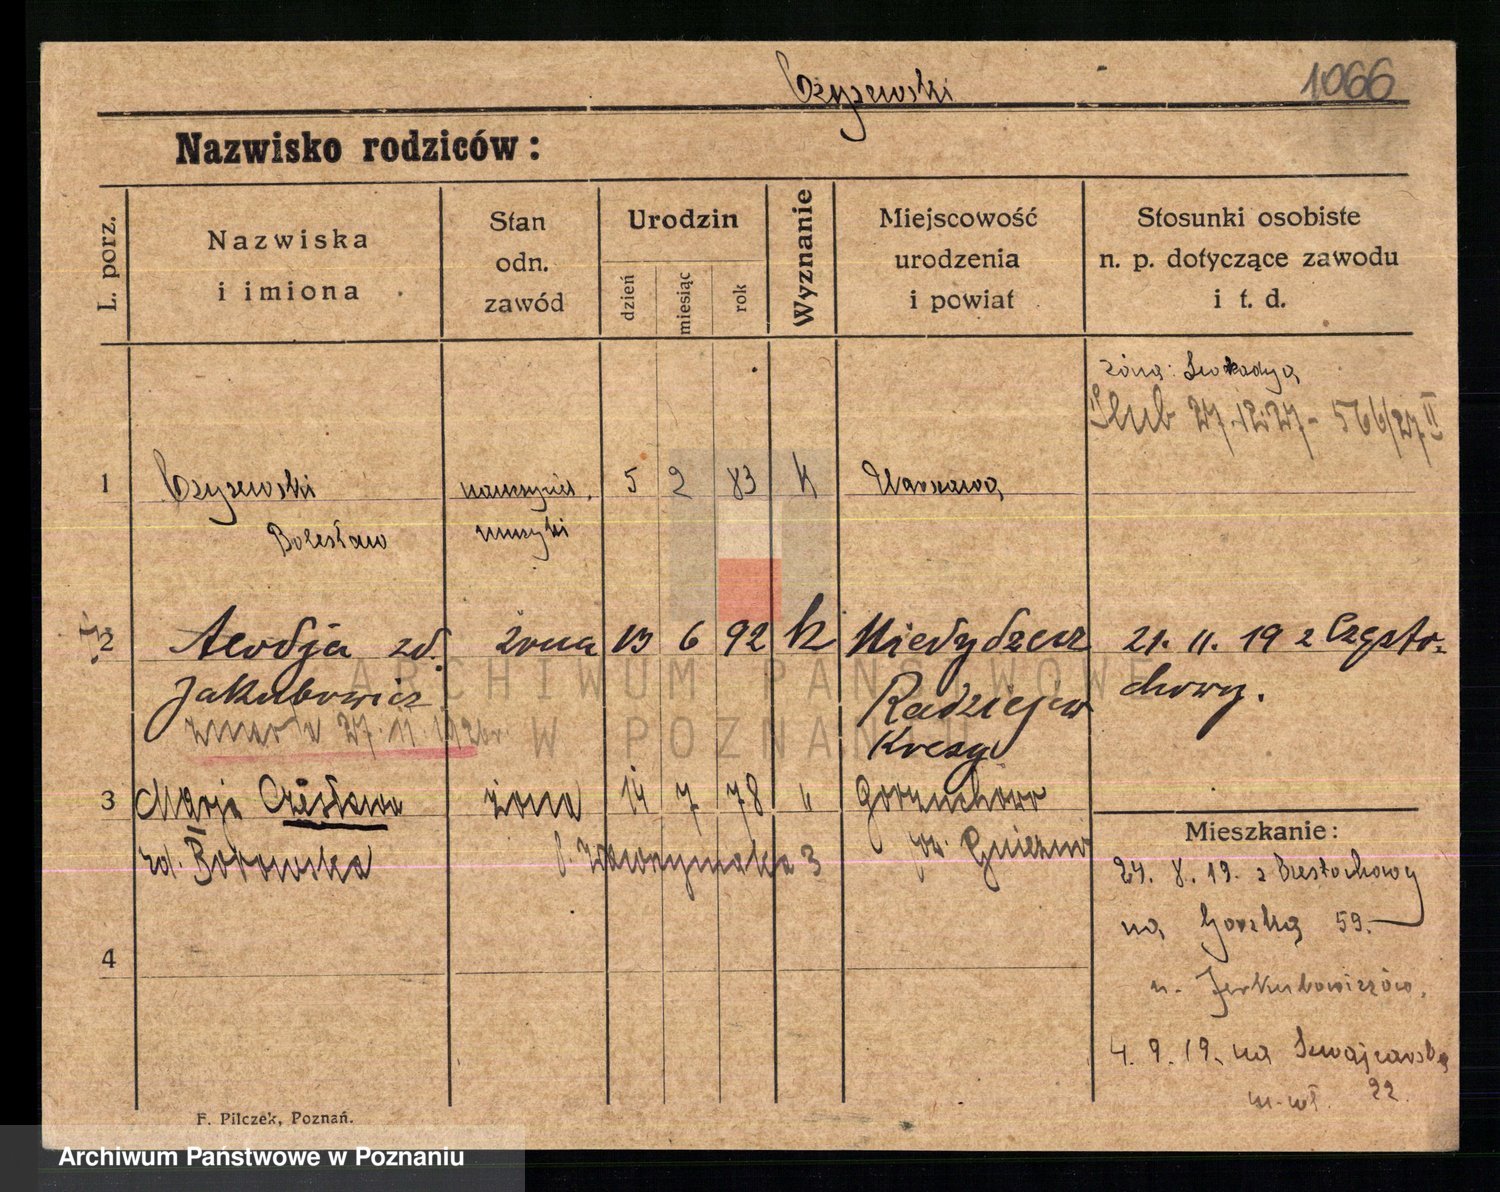 Czyżewski
1066
Nazwisko rodziców:
L. porz.
Nazwiska
i imiona
Stan
odn.
zawód
Urodzin
dzień
miesiąc
rok
Wyznanie
Miejscowość
urodzenia
i powiat
Stosunki osobiste
n. p. dotyczące zawodu
i t. d.
żona:
Ślub 27.12.27 - 566/27 II
1 Czyżewski nauczyciel 5 2 83 k Warszawa
Bolesław muzyki
2 zd. żona 13 6 92 k 21. 11. 19 z Często-
Jakubowicz Radziejew chowy.
zmarła 27.11.192
Kresy
3 Marja Czesława żona 14 7 78 " Gorzuchowo
zd. Borowska pow. Gniezno
Mieszkanie:
24. 8. 19. z Czestochowy
na Górką 59.
u. Jakubowiczów.
4
4. 9. 19. na Szwajcarską
22.
F. Pilczek, Poznań.
ARCHIWUM PAŃSTWOWE
W POZNANIU
Archiwum Państwowe w Poznaniu